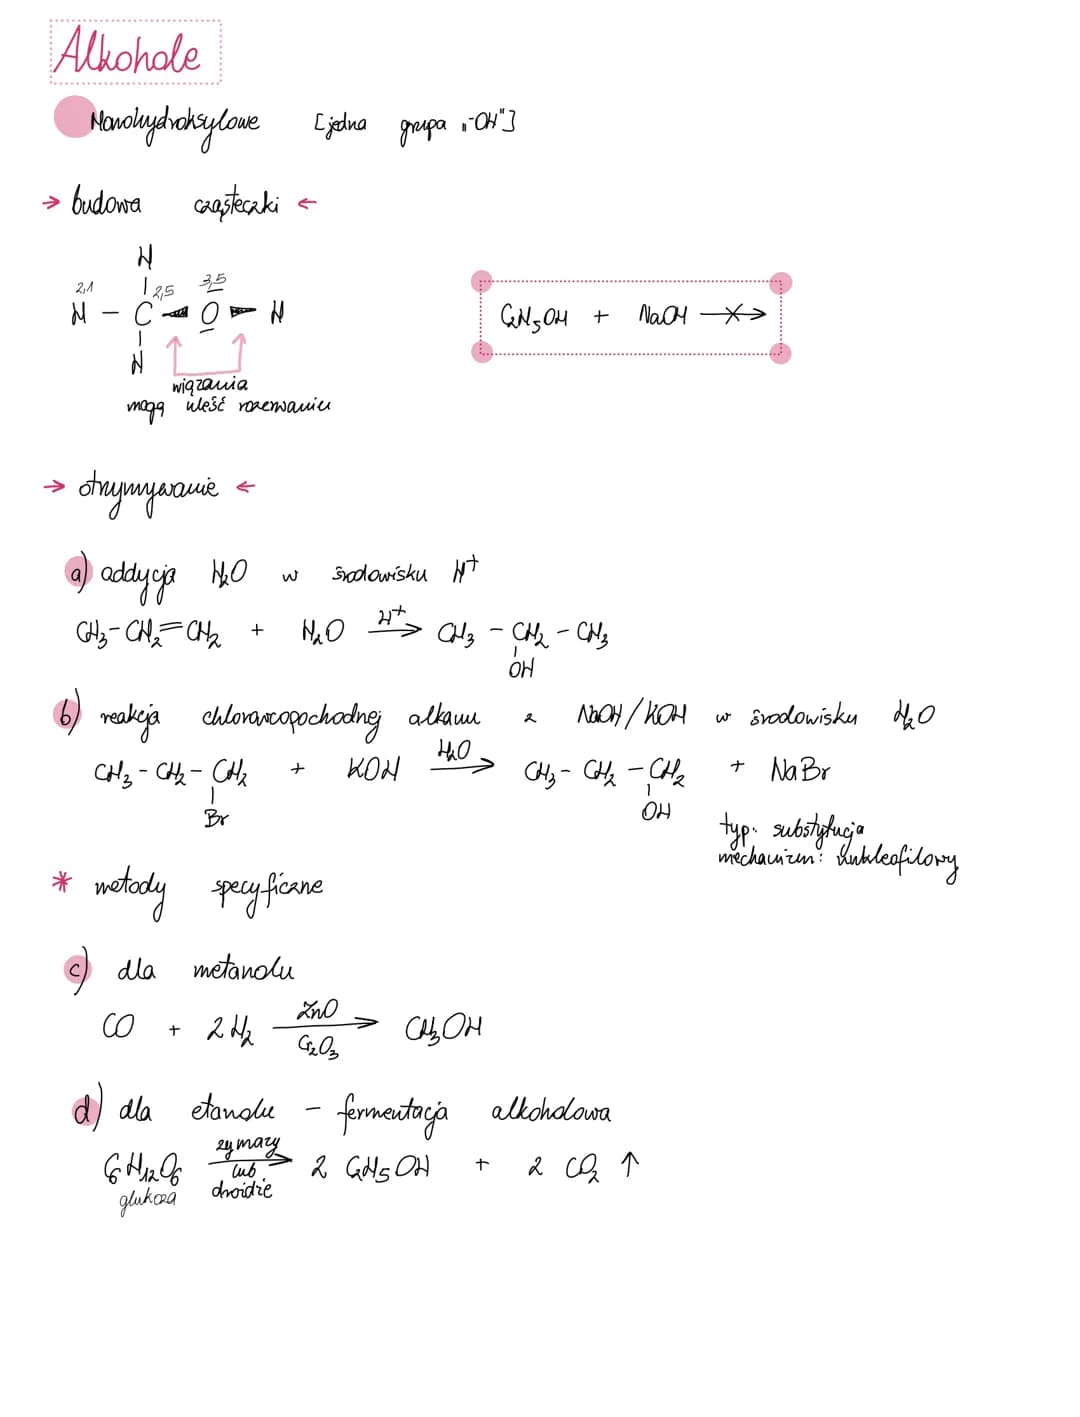 Alkohole
Monohydroksylowe [jedna grupa „-OH"]
→ budowa cząsteczki ←
H
2,1 | 2,5 3,5
H - C ◄ O ► H
|
H
wiązania
mogą uleść rozerwaniu
C₂H₅OH + NaOH -X→
→ otrzymywanie ←
a) addycja H₂O w środowisku H⁺
CH₃-CH₂=CH₂ + H₂O →[H⁺] CH₃ - CH₂ - CH₃
|
OH
b) reakcja chlorowcopochodnej alkanu z NaOH/KOH w środowisku H₂O
CH₃ - CH₂ - CH₂ + KOH →[H₂O] CH₃ - CH₂ - CH₂ + NaBr
| |
Br OH
typ: substytucja
mechanizm: nukleofilowy
* metody specyficzne
c) dla metanolu
CO + 2H₂ →[ZnO / Cr₂O₃] CH₃OH
d) dla etanolu - fermentacja alkoholowa
C₆H₁₂O₆ →[zymazy lub drożdże] 2 C₂H₅OH + 2 CO₂ ↑
glukoza